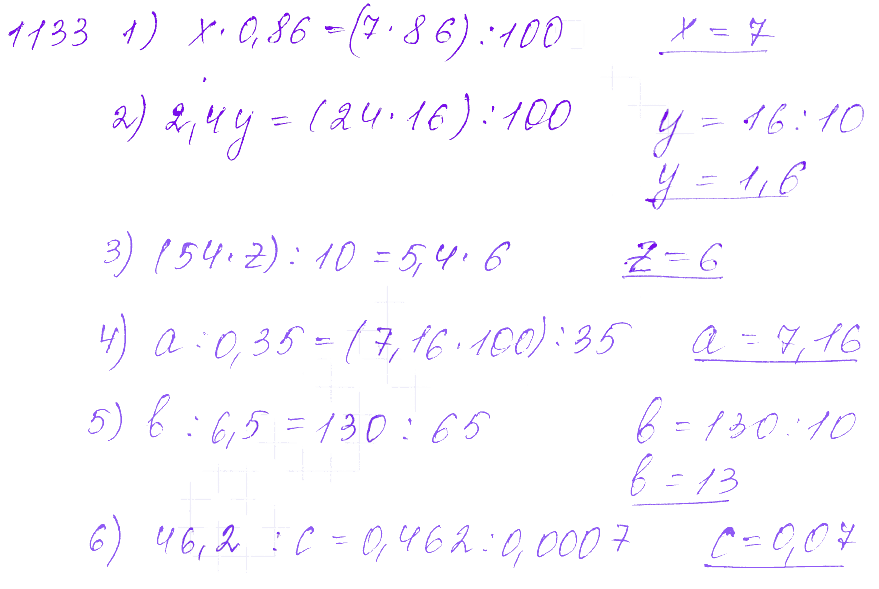 1133 1) x · 0,86 = (7 · 86) : 100 x = 7
2) 2,4y = (24 · 16) : 100 y = 16 : 10
y = 1,6
3) (54 · z) : 10 = 5,4 · 6 z = 6
4) a : 0,35 = (7,16 · 100) : 35 a = 7,16
5) b : 6,5 = 130 : 65 b = 130 : 10
b = 13
6) 46,2 : c = 0,462 : 0,0007 c = 0,07